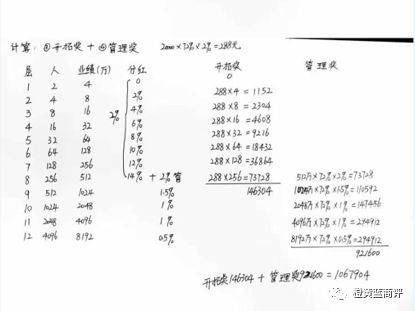 计算: ①开拓奖 + ②管理奖 20000×72%×2%=288元
层 人 业绩(万) 分红 开拓奖 管理奖
1 2 4 0 0
2 4 8 2% 288×4=1152
3 8 16 4% 288×8=2304
4 16 32 6% 288×16=4608
5 32 64 8% 288×32=9216
6 64 128 10% 288×64=18432
7 128 256 12% 288×128=36864
8 256 512 14% + 2%管 288×256=73728 512万×72%×2%=73728
9 512 1024 1.5% 146304 1024万×72%×1.5%=110592
10 1024 2048 1% 2048万×72%×1%=147456
11 2048 4096 1% 4096万×72%×1%=294912
12 4096 8192 0.5% 8192万×72%×0.5%=294912
2%
921600
开拓奖146304 + 管理奖921600 = 1067904
橙黄蓝商评